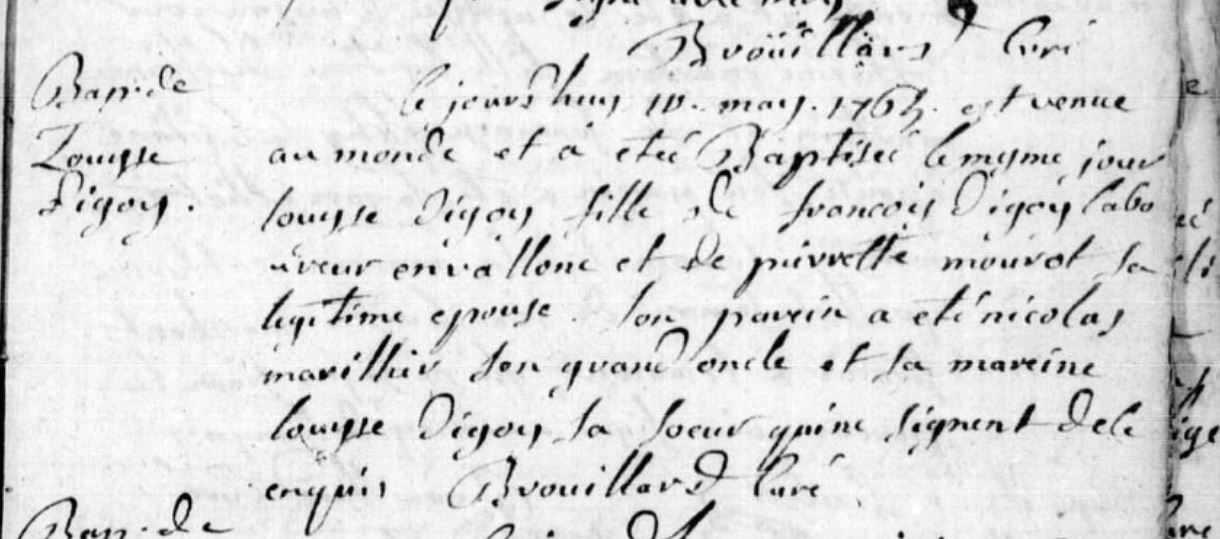 signé avec moy
Broüillard Curé
Bap. de
Louysse
Digoy.
Ce jourd'huy 10. may. 1765. est venue
au monde et a eteé Baptiseé le mesme jour
louysse Digoy fille de francois Digoy labo
ureur en vallone et de pierrette mourot sa
legitime epouse. Son parein a eté nicolas
marillier son grand oncle et sa mareine
louysse Digoy sa soeur qui ne signent de ce
enquis Brouillard Curé
Bap. de